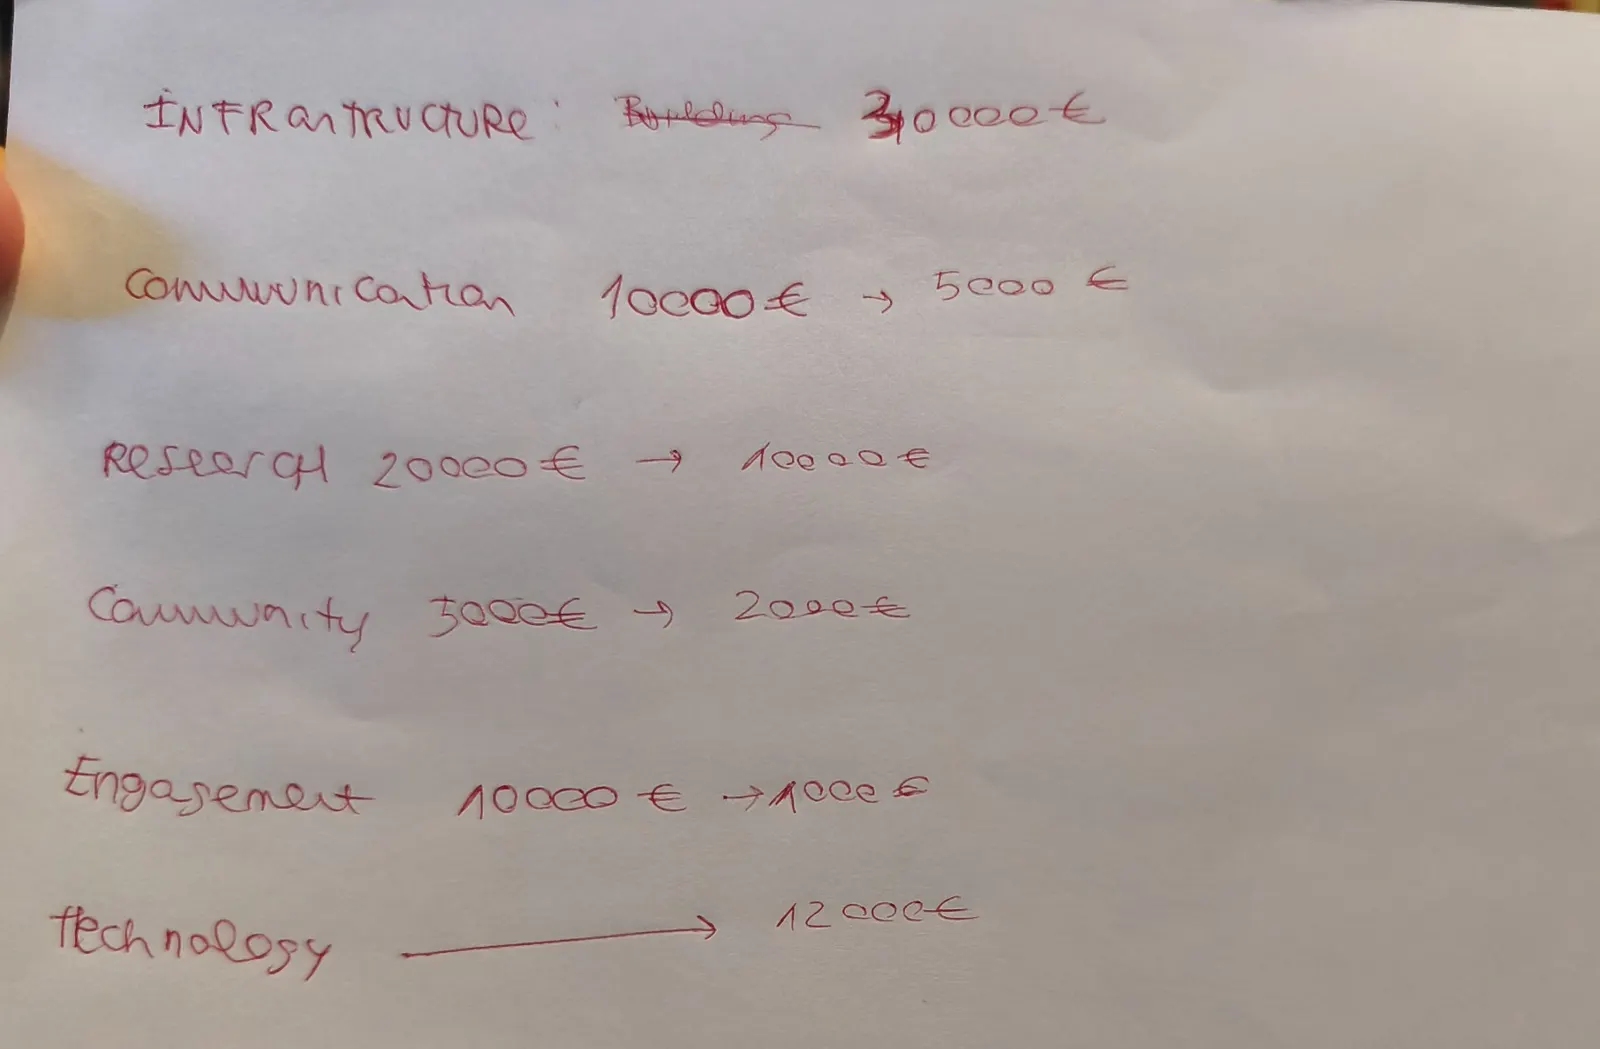 INFRASTRUCTURE: Building 30000€
Communication 10000€ → 5000 €
RESEARCH 20000€ → 10000€
Community 5000€ → 2000€
Engagement 10000 € → 1000 €
technology → 12000€